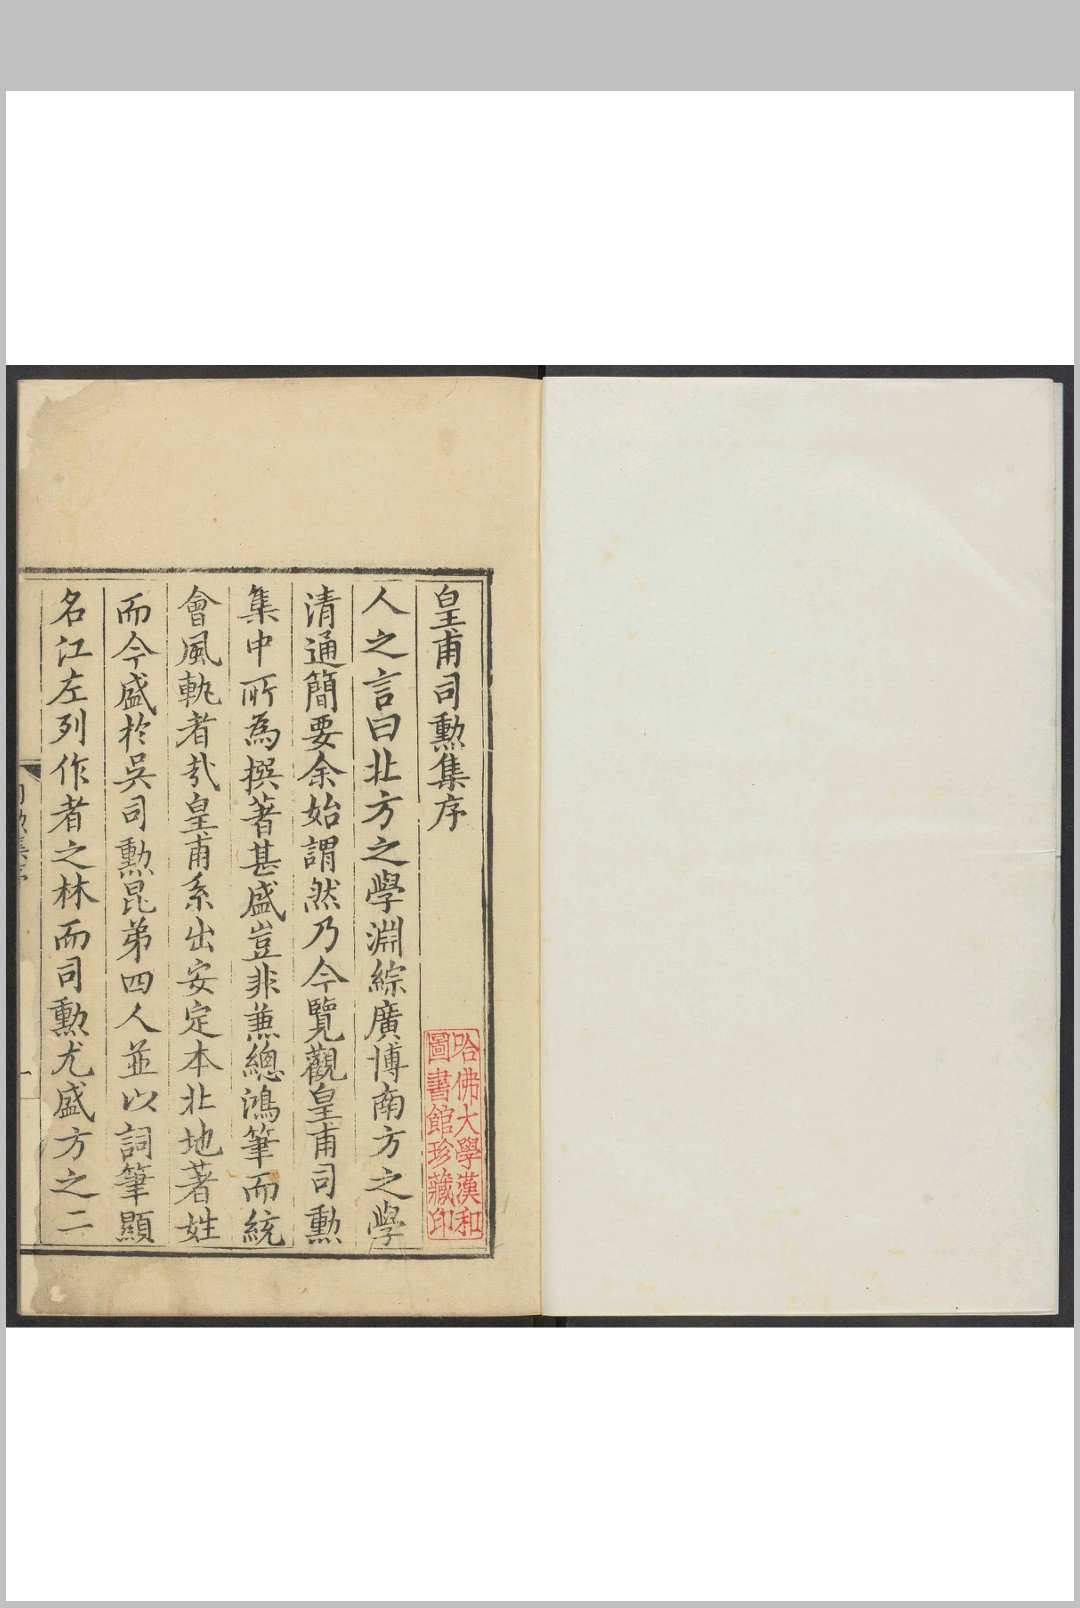 皇甫司勲集序
人之言曰北方之學淵綜廣博南方之學
清通簡要余始謂然乃今覽觀皇甫司勲
集中所為撰著甚盛豈非兼總鴻筆而統
會風軌者㢤皇甫系出安定本北地著姓
而今盛於吳司勲昆弟四人並以詞筆顯
名江左列作者之林而司勲尤盛方之二
哈佛大學漢和
圖書館珍藏印